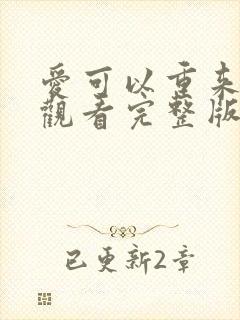 愛可以重来
觀看完整版
已更新2章